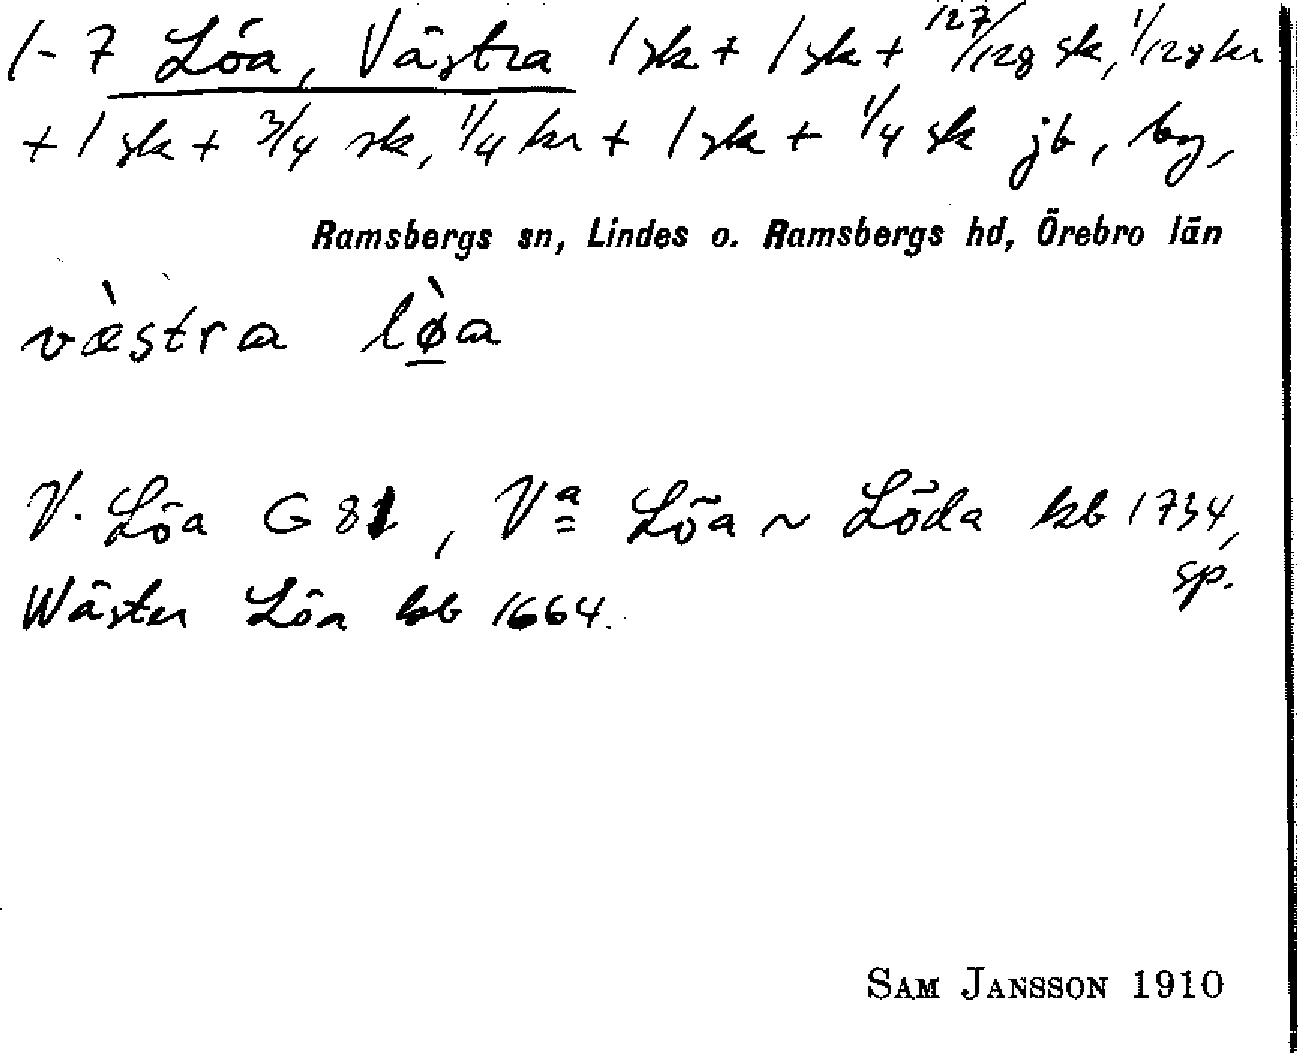 1-7 Löa, Västra 1 sk + 1 sk + 127/128 sk, 1/128 kr
+ 1 sk + 3/4 sk, 1/4 kr + 1 sk + 1/4 sk jb, by,
Ramsbergs sn, Lindes o. Ramsbergs hd, Örebro län
væ̀stra lø̠̀a
V. Löa G 81, Vª Löa ~ Löda kb 1734,
sp.
Wäster Löa kb 1664.
SAM JANSSON 1910